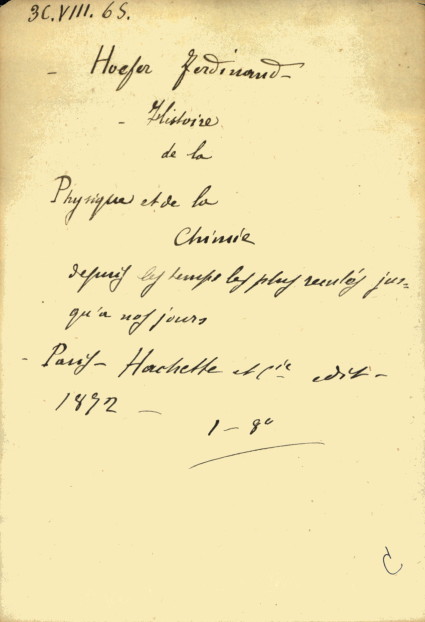 3C.VIII.65.
- Hoefer Ferdinand -
- Histoire
de la
Physique et de la
Chimie
depuis les temps les plus reculés jus=
qu'a nos jours
- Paris - Hachette et Cie edit -
1872 -
1 - 8°
C